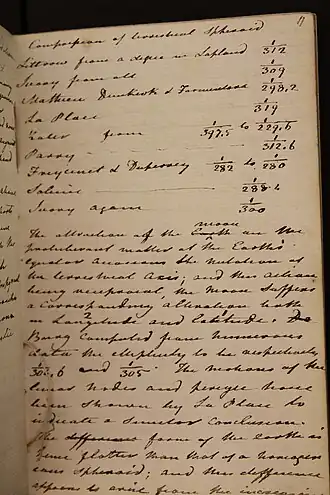 11
Compression of terrestrial Spheroid
Littrow from a degree in Lapland 1/312
Survey from old 1/309
Mathieu & Formentera 1/298.2
La Place 1/319
Kater from 1/347.5 to 1/229.6
Parry 1/312.6
Freycinet & Duperrey 1/282 to 1/280
Sabine 1/288.4
again 1/300
The attraction of the moon Earth on the
protuberant matter at the Earth's
Equator occasions the nutation of
the terrestrial Axis; and this action
being reciprocal, the Moon suffers
a corresponding alteration both
in Longitude and Latitude.
Burg computed from numerous
the ellipticity to be respectively
1/303.6 and 1/305. The motions of the
lunar nodes and perigee have
been shown by La Place to
indicate a similar conclusion.
The difference form of the earth is
flatter than that of a
Spheroid; and this difference
appears to arise from the increase